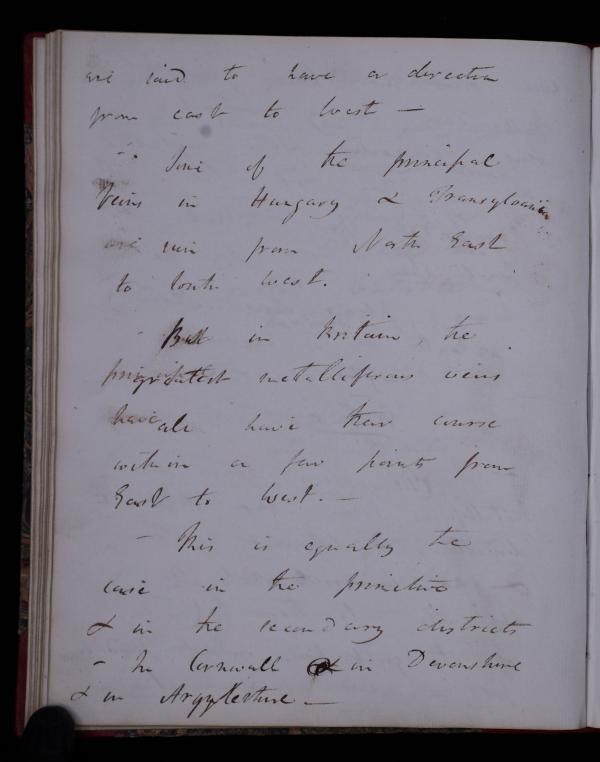 are said to have a direction
from east to west —
- Some of the principal
Veins in Hungary & Transylvania
are run from North East
to South West.
- But in Britain, the
greatest metalliferous veins
have all have their course
within a few points from
East to West. —
- This is equally the
case in the primitive
& in the secondary districts
- In Cornwall & in Devonshire
& in Argyleshire —